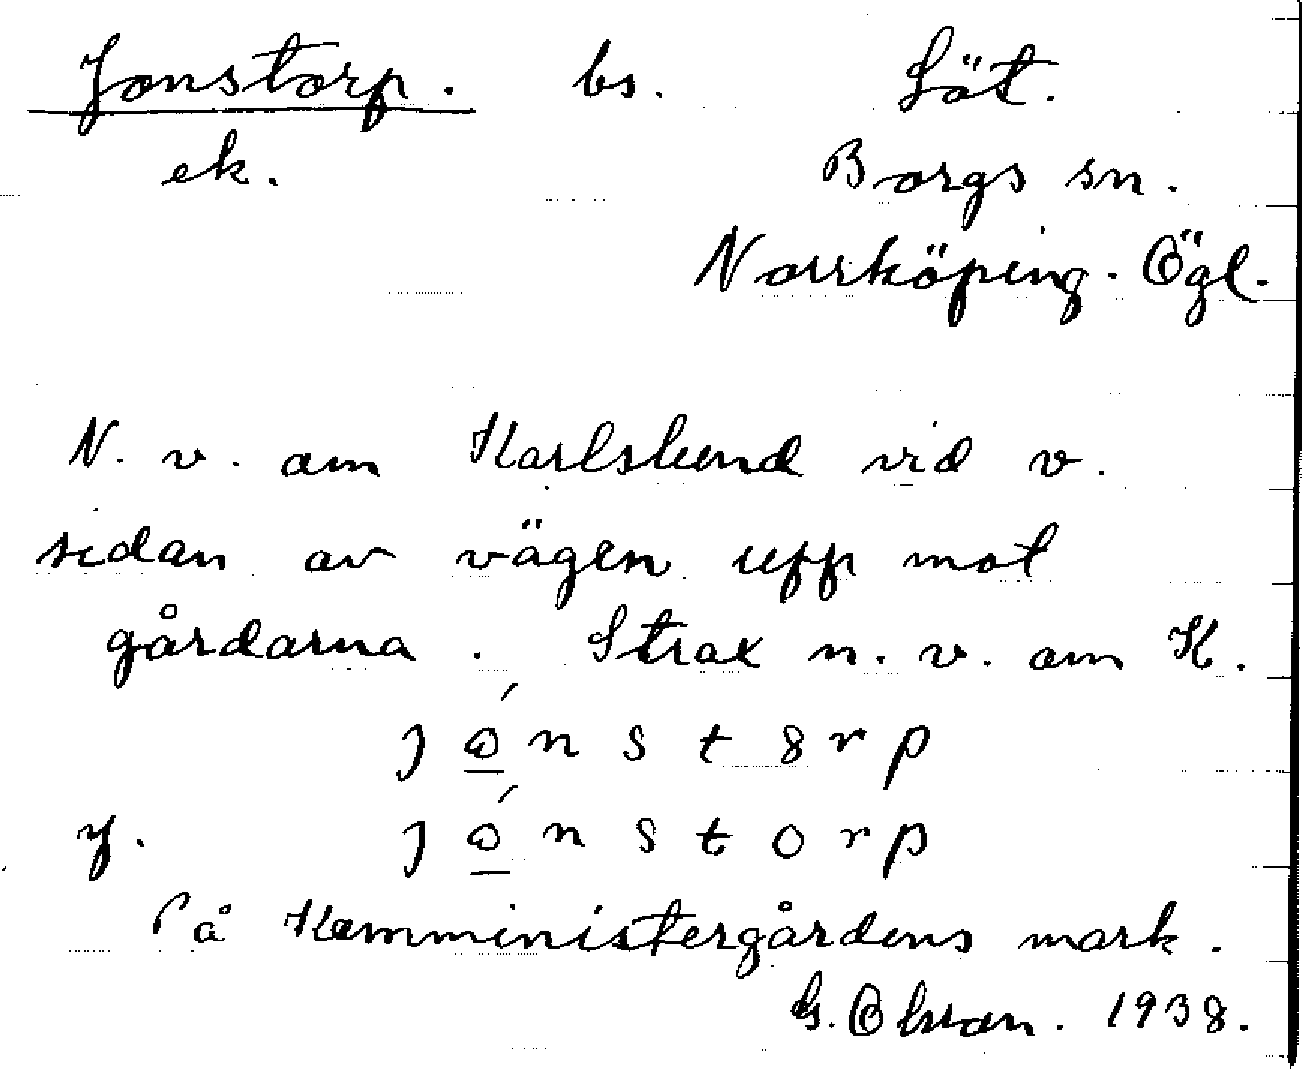 Jonstorp. bs. Löt.
ek. Borgs sn.
Norrköping. Ögl.
N. v. om Karlslund vid v.
sidan av vägen upp mot
gårdarna. Strax n. v. om K.
j ó n s t 8 r p
y. j ó n s t o r p
På Komministergårdens mark.
G. Olson. 1938.